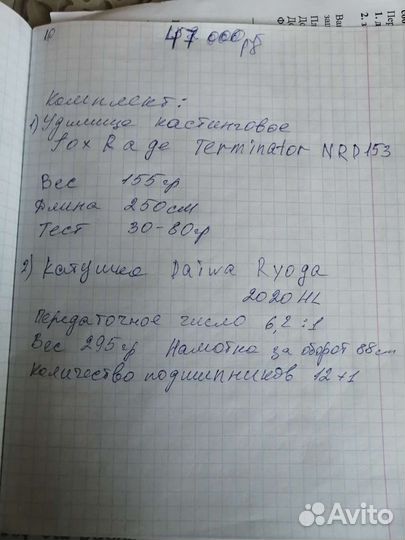 10
47 000 рб
Комплект:
1) Удилище кастинговое
Fox Rage Terminator NRD153
Вес 155гр
Длина 250см
Тест 30-80гр
2) Катушка Daiwa Ryoga
2020HL
Передаточное число 6,2:1
Вес 295гр Намотка за оборот 88см
Количество подшипников 12+1
Avito